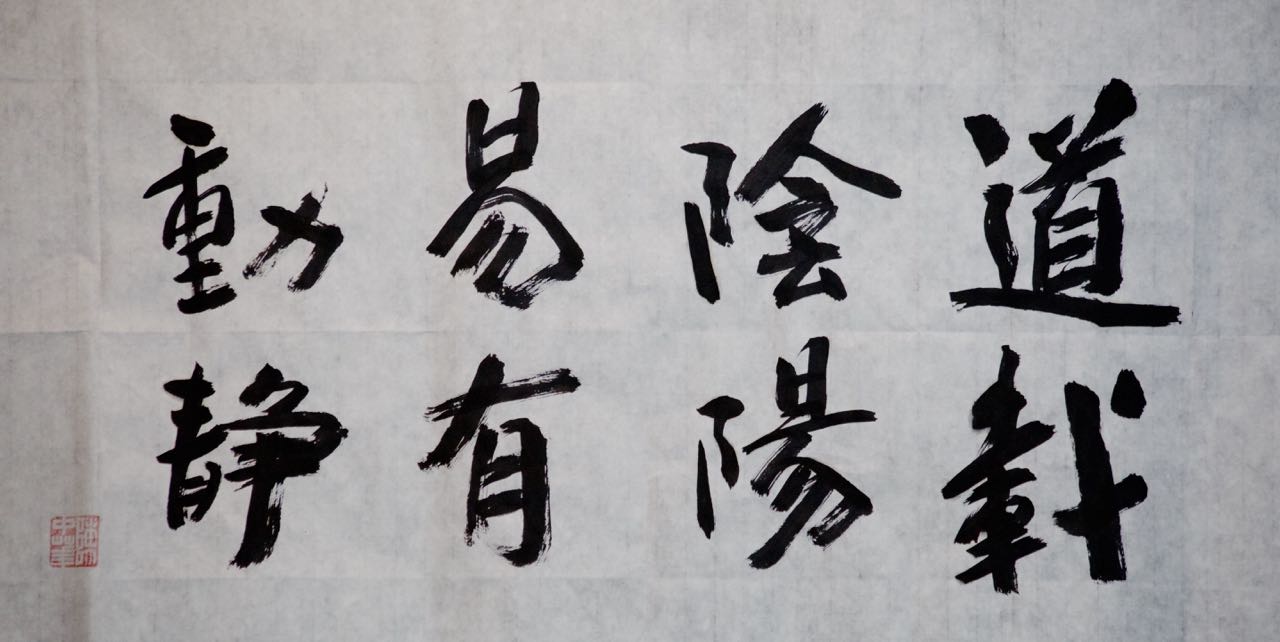 道載
陰陽
易有
動静